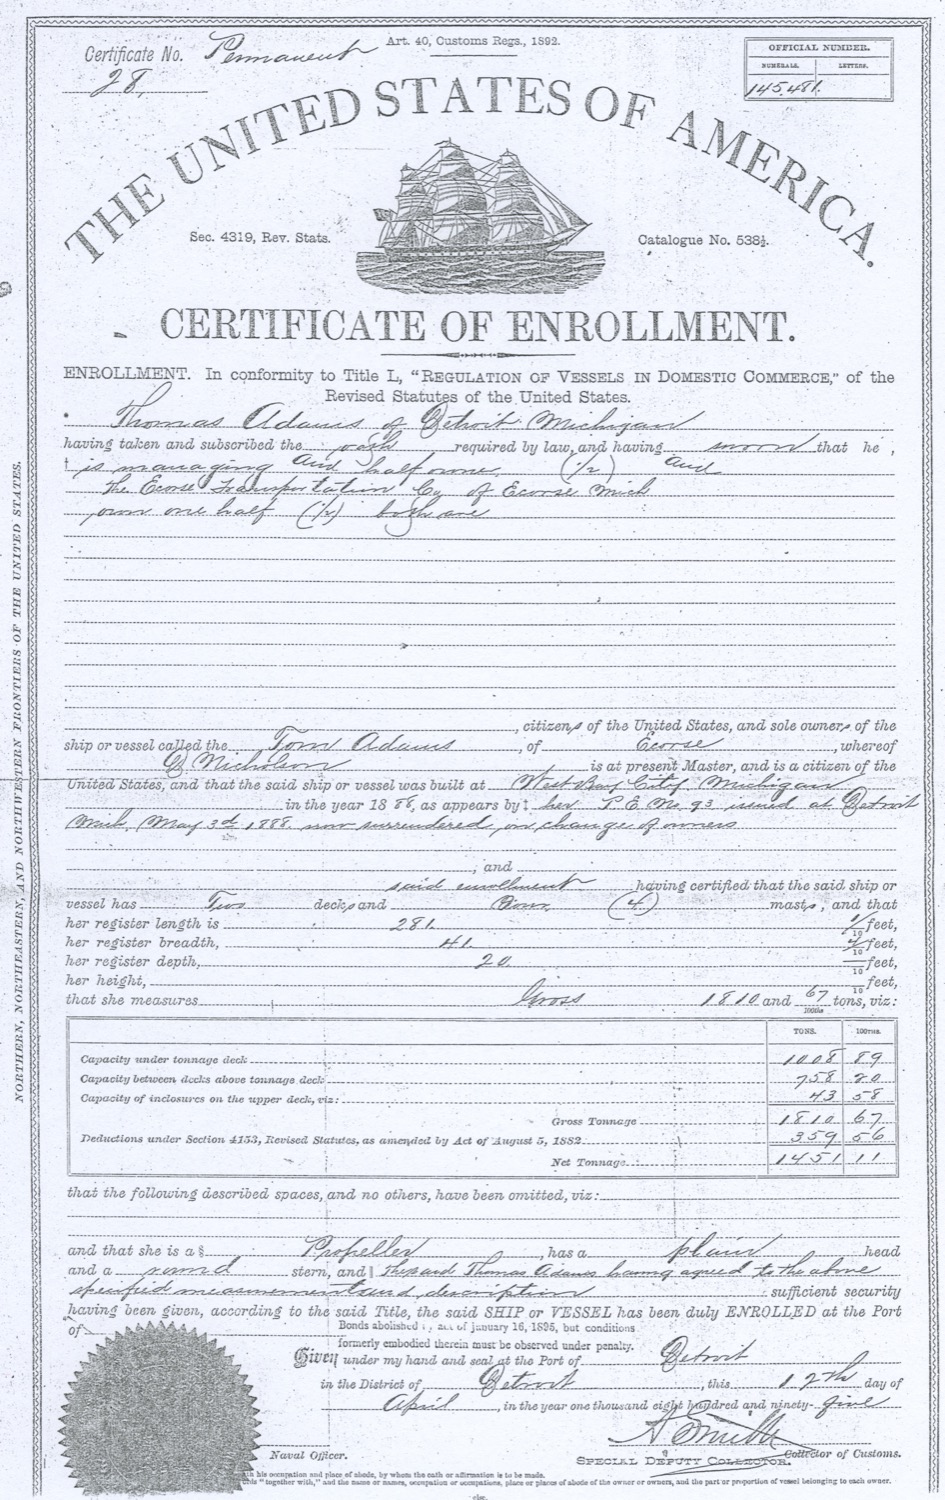 Certificate No. Permanent
28.
Art. 40, Customs Regs., 1892.
OFFICIAL NUMBER.
NUMERALS. LETTERS.
145481.
THE UNITED STATES OF AMERICA.
Sec. 4319, Rev. Stats.
Catalogue No. 538½.
CERTIFICATE OF ENROLLMENT.
ENROLLMENT. In conformity to Title L, "REGULATION OF VESSELS IN DOMESTIC COMMERCE," of the
Revised Statutes of the United States.
Thomas Adams of Detroit Michigan
having taken and subscribed the oath required by law, and having sworn that he
is managing and half owner (1/2) and
The Ecorse Transportation Co of Ecorse Mich
own one half (1/2) both are
citizens of the United States, and sole owners of the
ship or vessel called the Tom Adams, of Ecorse, whereof
G Nicholson is at present Master, and is a citizen of the
United States, and that the said ship or vessel was built at West Bay City Michigan
in the year 1888, as appears by her P.E. No. 93 issued at Detroit
Mich, May 3d 1888. now surrendered, on change of owners
, and
said enrollment having certified that the said ship or
vessel has Two decks and Four (4) masts, and that
her register length is 281 1/10 feet,
her register breadth, 41 /10 feet,
her register depth, 20 /10 feet,
her height, /10 feet,
that she measures Gross 1810 and 67 100ths tons, viz:
TONS. 100THS.
Capacity under tonnage deck 1008 89
Capacity between decks above tonnage deck 758 20
Capacity of inclosures on the upper deck, viz: 43 58
Gross Tonnage 1810 67
Deductions under Section 4153, Revised Statutes, as amended by Act of August 5, 1882. 359 56
Net Tonnage 1451 11
that the following described spaces, and no others, have been omitted, viz:
and that she is a § Propeller, has a plain head
and a round stern, and The said Thomas Adams having agreed to the above
specified measurements and description sufficient security
having been given, according to the said Title, the said SHIP or VESSEL has been duly ENROLLED at the Port
of
Bonds abolished act of January 16, 1895, but conditions
formerly embodied therein must be observed under penalty.
Given under my hand and seal at the Port of Detroit
in the District of Detroit, this 12th day of
April, in the year one thousand eight hundred and ninety-five
Naval Officer.
Collector of Customs.
SPECIAL DEPUTY COLLECTOR.
his occupation and place of abode, by whom the oath or affirmation is to be made.
"together with," and the name or names, occupation or occupations, place or places of abode of the owner or owners, and the part or proportion of vessel belonging to each owner.
NORTHERN, NORTHEASTERN, AND NORTHWESTERN FRONTIERS OF THE UNITED STATES.